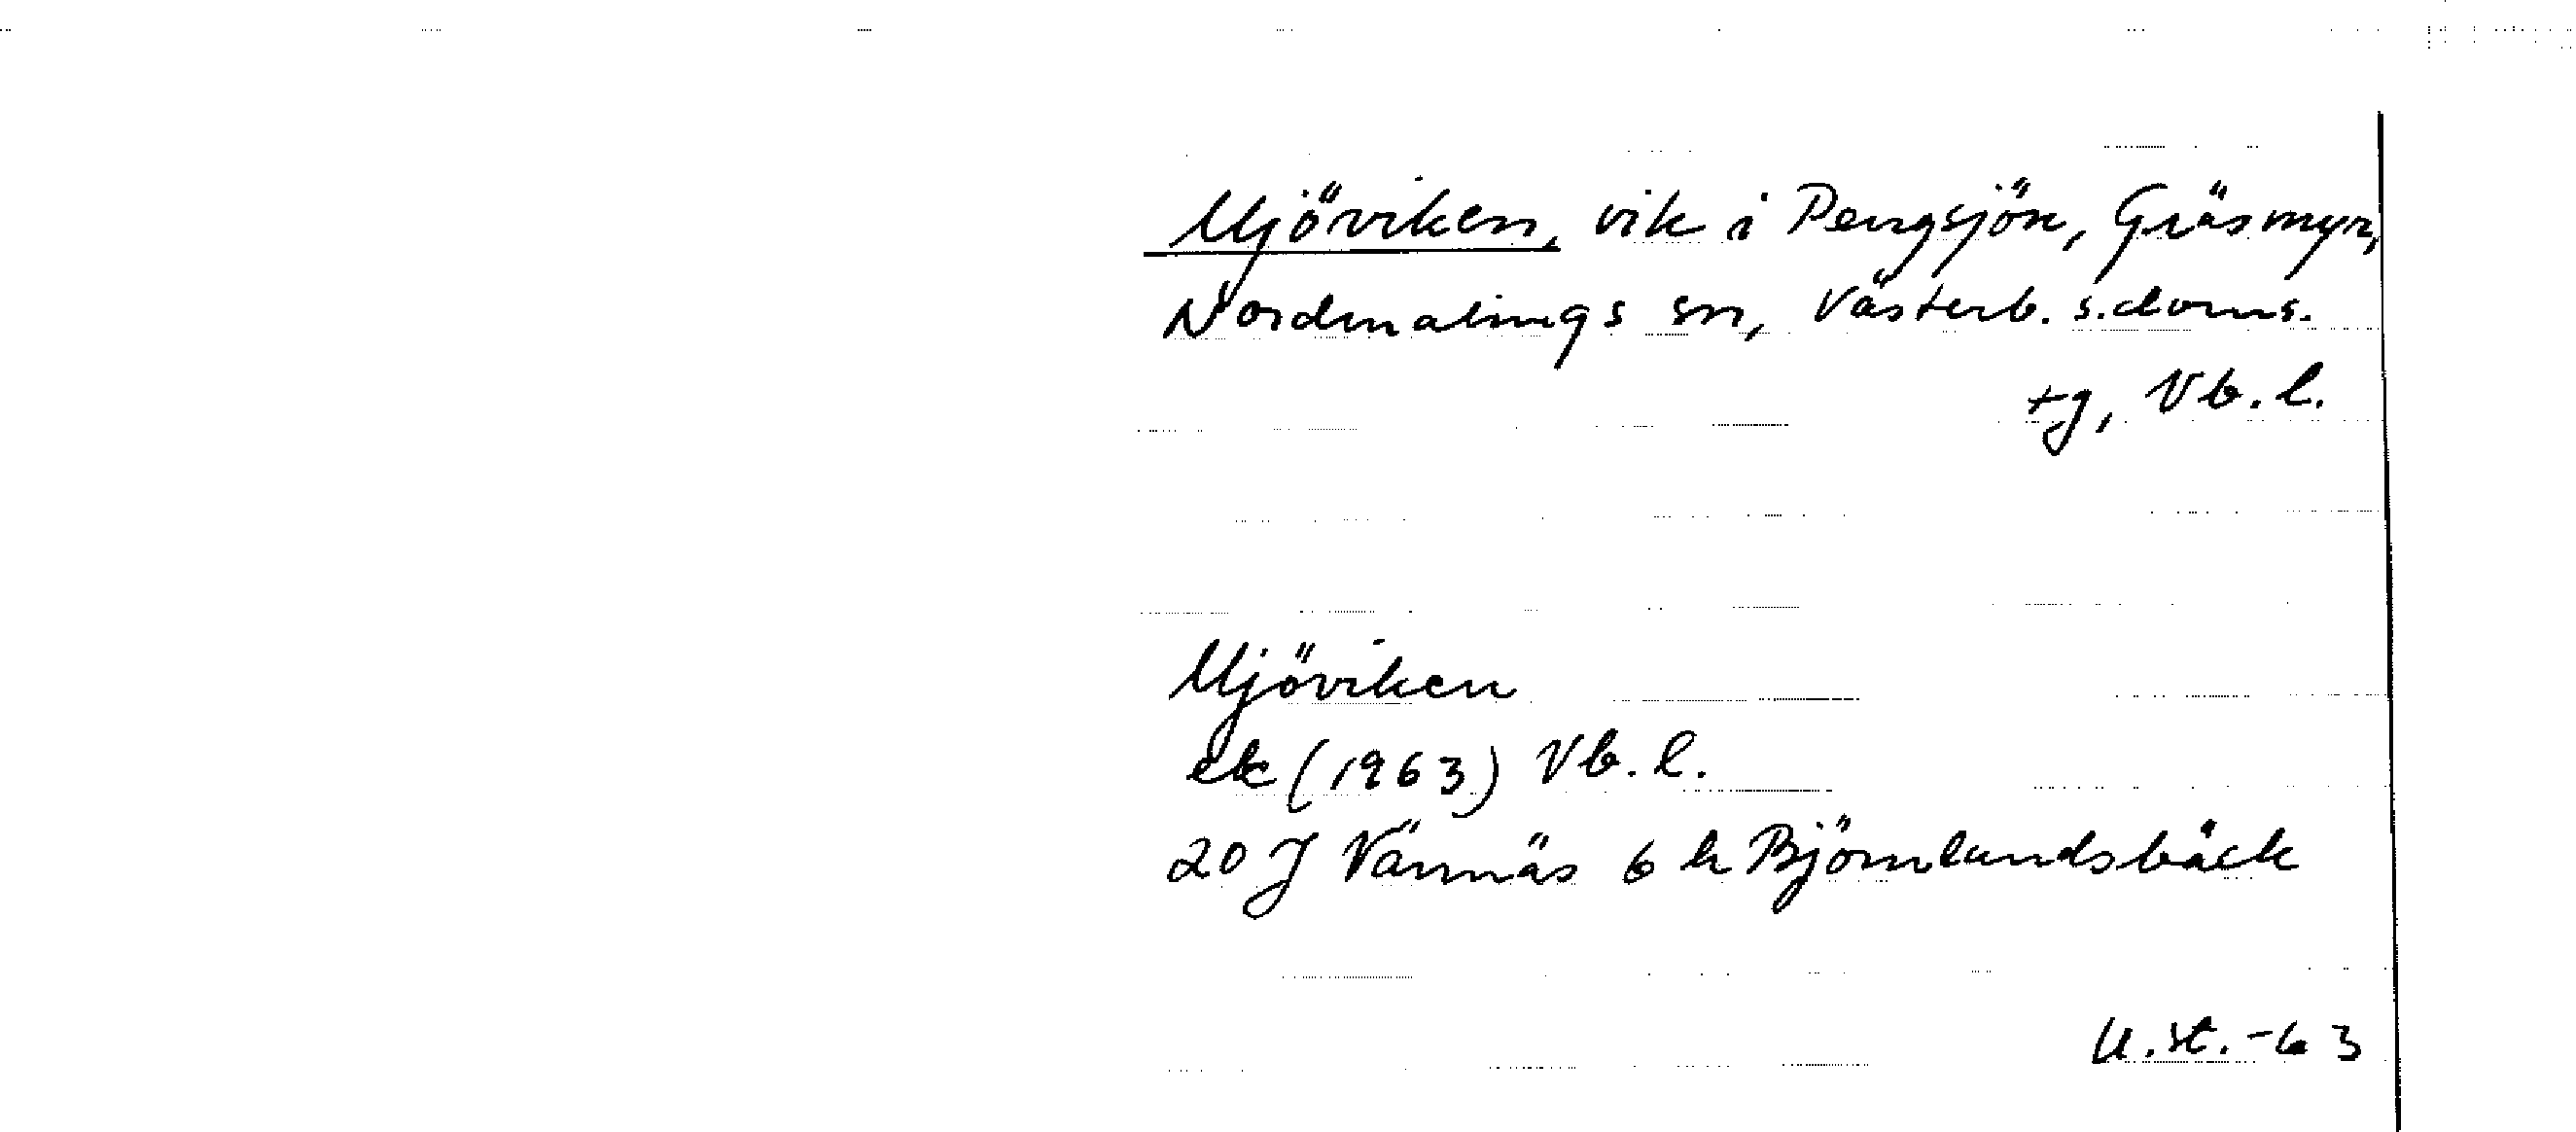 Mjöviken, vik i Pengsjön, Gräsmyr,
Nordmalings sn, Västerb. s. doms.
tg, Vb. l.
Mjöviken
ek (1963) Vb. l.
20 J Vännäs 6 h Björnlandsbäck
U. st. -63